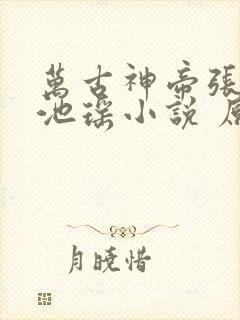 萬古神帝張
池瑤小說 原
月曉惜